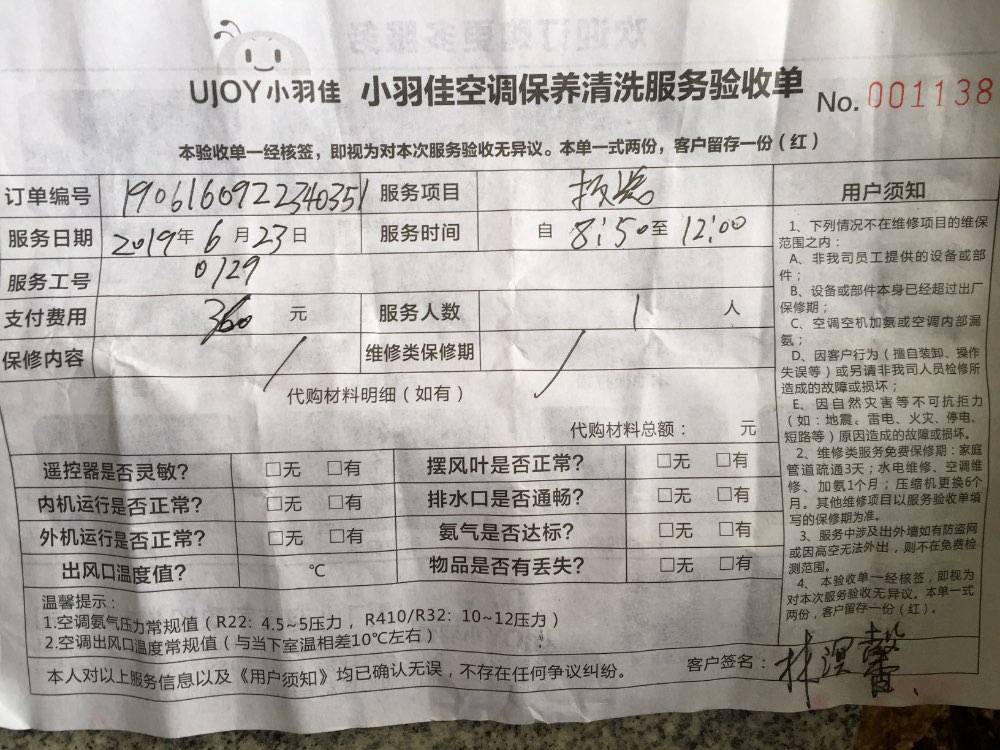 UJOY小羽佳 小羽佳空调保养清洗服务验收单 No. 001138
本验收单一经核签，即视为对本次服务验收无异议。本单一式两份，客户留存一份(红)
订单编号 1906160922340351 服务项目
服务日期 2019年6月23日 服务时间 自 8:50至 12:00
服务工号 0129
支付费用 360 元 服务人数 1 人
保修内容 / 维修类保修期 /
代购材料明细(如有)
代购材料总额： 元
遥控器是否灵敏? □无 □有 摆风叶是否正常? □无 □有
内机运行是否正常? □无 □有 排水口是否通畅? □无 □有
外机运行是否正常? □无 □有 氨气是否达标? □无 □有
出风口温度值? ℃ 物品是否有丢失? □无 □有
温馨提示：
1.空调氨气压力常规值(R22: 4.5~5压力，R410/R32: 10~12压力)
2.空调出风口温度常规值(与当下室温相差10℃左右)
本人对以上服务信息以及《用户须知》均已确认无误，不存在任何争议纠纷。 客户签名：林
用户须知
1、下列情况不在维修项目的维保
范围之内：
A、非我司员工提供的设备或部
件；
B、设备或部件本身已经超过出厂
保修期；
C、空调空机加氨或空调内部漏
氨；
D、因客户行为(擅自装卸、操作
失误等)或另请非我司人员检修所
造成的故障或损坏；
E、因自然灾害等不可抗拒力
(如:地震、雷电、火灾、停电、
短路等)原因造成的故障或损坏。
2、维修类服务免费保修期：家庭
管道疏通3天；水电维修、空调维
修、加氨1个月；压缩机更换6个
月。其他维修项目以服务验收单填
写的保修期为准。
3、服务中涉及出外墙如有防盗网
或因高空无法外出，则不在免费检
测范围。
4、本验收单一经核签，即视为
对本次服务验收无异议。本单一式
两份，客户留存一份(红)。